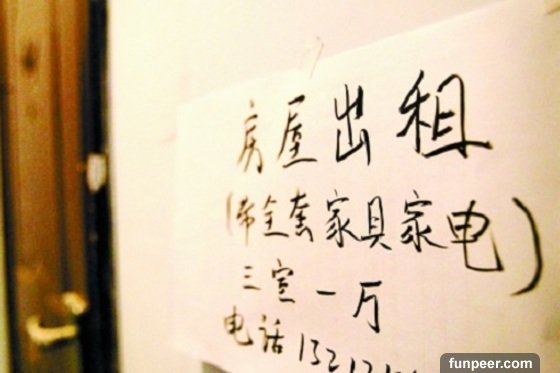 房屋出租
(带全套家具家电)
三室一厅
电话132
funpeer.com